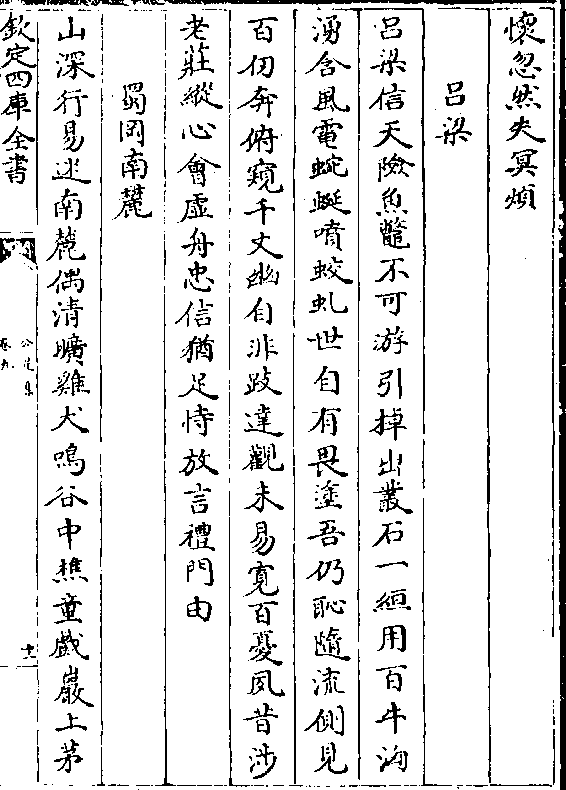 懷忽然失冥煩
吕梁
吕梁信天險魚鼈不可游引掉出叢石一緪用百牛洶
湧含風電蜿蜒噴蛟虬世自有畏塗吾仍恥隨流側見
百仞奔俯窺千丈幽自非跂達觀未易寛百憂夙昔涉
老莊縱心會虛舟忠信猶足恃放言禮門由
蜀岡南麓
山深行易迷南麓偶清曠雞犬鳴谷中樵童戲巖上茅
欽定四庫全書
公是集
卷九
十一